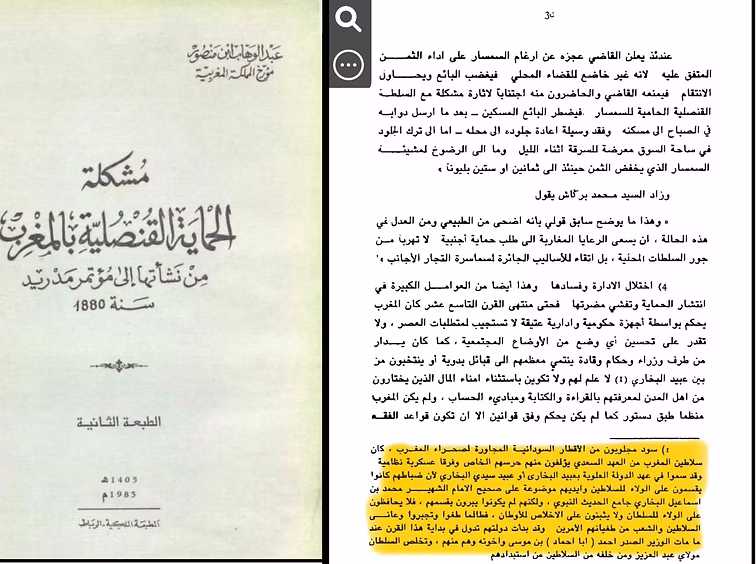 عبد الوهاب ابن منصور
مؤرخ المملكة المغربية
مشكلة
الحماية القنصلية بالمغرب
من نشأتها إلى مؤتمر مدريد
سنة 1880
الطبعة الثانية
1405 هـ
1985 م
المطبعة الملكية ـ الرباط
عندئذ يعلن القاضي عجزه عن ارغام السمسار على اداء الثمـن
المتفق عليه لانه غير خاضع للقضاء المحلي فيغضب البائع ويحـاول
الانتقام فيمنعه القاضي والحاضرون منه اجتنابا لاثارة مشكلة مع السلطة
القنصلية الحامية للسمسار . فيضطر البائع المسكين ـ بعد ما ارسل دوابه
في الصباح الى مسكنه وفقد وسيلة اعادة جلوده الى محله ـ اما الى ترك الجلود
في ساحة السوق معرضة للسرقة اثناء الليل وما الى الرضوخ لمشيئـة
السمسار الذي يخفض الثمن حينئذ الى ثمانين او ستين بليونا »
وزاد السيد محمد بركاش يقول
« وهذا ما يوضح سابق قولي بانه اضحى من الطبيعي ومن العدل في
هذه الحالة ، ان يسعى الرعايا المغاربة الى طلب حماية أجنبية لا تهربا مـن
جور السلطات المحلية ، بل اتقاء للأساليب الجائرة لسماسرة التجار الأجانب »
4) اختلال الادارة وفسادها وهذا أيضا من العوامـل الكبيرة في
انتشار الحماية وتفشي مضرتها فحتى منتهى القرن التاسع عشر كان المغرب
يحكم بواسطة أجهزة حكومية وادارية عتيقة لا تستجيب لمتطلبات العصر ، ولا
تقدر على تحسين أي وضع من الأوضاع المجتمعية ، كما كان يـدار
من طرف وزراء وحكام وقادة ينتمي معظمهم الى قبائل بدوية أو ينتخبون من
بين عبيد البخاري (1) لا علم لهم ولا تكوين باستثناء امناء المال الذين يختارون
من اهل المدن لمعرفتهم بالقراءة والكتابة ومباديء الحساب ، ولم يكن المغرب
منظما طبق دستور كما لم يكن يحكم وفق قوانين الا ان تكون قواعد الفقـه
1) سود مجلوبون من الأقطار السودانية المجاورة لصحراء المغرب ، كان
سلاطين المغرب من العهد السعدي يؤلفون منهم حرسهم الخاص وفرقا عسكرية نظامية
وقد سموا في عهد الدولة العلوية بعبيد البخاري أو عبيد سيدي البخاري لأن ضباطهم كانوا
يقسمون على الولاء للسلاطين وايديهم موضوعة على صحيح الامام الشهيـر محمد بن
اسماعيل البخاري جامع الحديث النبوي ، ولكنهم لم يكونوا يبرون بقسمهم ، فلا يحافظون
على الولاء للسلطان ولا يثبتون على الاخلاص للأوطان ، فطالما طغوا وتجبروا وعانـى
السلاطين والشعب من طغيانهم الأمرين وقد بدأت دولتهم تدول في بداية هذا القرن عند
ما مات الوزير الصدر احمد ( ابا احماد ) بن موسى واخوته وهم منهم ، وتخلص السلطان
مولاي عبد العزيز ومن خلفه من السلاطين من استبدادهم